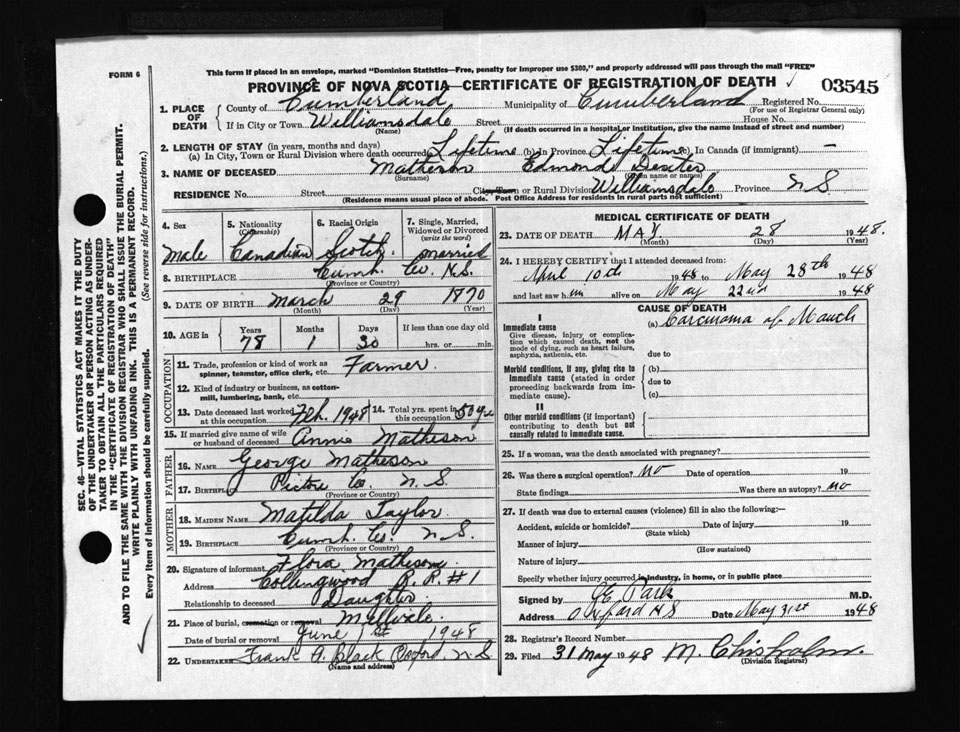 This form if placed in an envelope, marked "Dominion Statistics—Free, penalty for improper use $300," and properly addressed will pass through the mail "FREE"
FORM 6
PROVINCE OF NOVA SCOTIA—CERTIFICATE OF REGISTRATION OF DEATH ✓ 03545
1. PLACE OF DEATH County of Cumberland Municipality of Cumberland Registered No.
(For use of Registrar General only)
If in City or Town Williamsdale Street House No.
(Name) (If death occurred in a hospital or institution, give the name instead of street and number)
2. LENGTH OF STAY (in years, months and days)
(a) In City, Town or Rural Division where death occurred Lifetime (b) In Province Lifetime (c) In Canada (if immigrant) —
3. NAME OF DECEASED Matheson Edmond Dexter
(Surname) (Given name or names)
RESIDENCE No. Street City, Town or Rural Division Williamsdale Province N.S.
(Residence means usual place of abode. Post Office Address for residents in rural parts not sufficient)
4. Sex 5. Nationality (Citizenship) 6. Racial Origin 7. Single, Married, Widowed or Divorced (write the word)
Male Canadian Scotch Married
8. BIRTHPLACE Cumb. Co. N.S.
(Province or Country)
9. DATE OF BIRTH March 29 1870
(Month) (Day) (Year)
10. AGE in Years Months Days If less than one day old
78 1 30 hrs. or min.
OCCUPATION
11. Trade, profession or kind of work as spinner, teamster, office clerk, etc. Farmer
12. Kind of industry or business, as cotton-mill, lumbering, bank, etc.
13. Date deceased last worked at this occupation Feb. 1948 14. Total yrs. spent in this occupation 50 yrs
15. If married give name of wife or husband of deceased Annie Matheson
FATHER
16. NAME George Matheson
17. BIRTHPLACE Pictou Co. N.S.
(Province or Country)
MOTHER
18. MAIDEN NAME Matilda Taylor
19. BIRTHPLACE Cumb. Co. N.S.
(Province or Country)
20. Signature of informant Flora Matheson
Address Collingwood R.R. #1
Relationship to deceased Daughter
21. Place of burial, cremation or removal Millvale
Date of burial or removal June 1st 1948
22. UNDERTAKER Frank A. Black Oxford, N.S.
(Name and address)
MEDICAL CERTIFICATE OF DEATH
23. DATE OF DEATH MAY 28 1948.
(Month) (Day) (Year)
24. I HEREBY CERTIFY that I attended deceased from:
April 10th 1948 to May 28th 1948
and last saw him alive on May 22nd 1948
CAUSE OF DEATH
I
Immediate cause (a) Carcinoma of Mouth
Give disease, injury or complication which caused death, not the mode of dying, such as heart failure, asphyxia, asthenia, etc.
due to
Morbid conditions, if any, giving rise to immediate cause (stated in order proceeding backwards from immediate cause).
(b)
due to
(c)
II
Other morbid conditions (if important) contributing to death but not causally related to immediate cause.
25. If a woman, was the death associated with pregnancy?
26. Was there a surgical operation? no Date of operation 19
State findings Was there an autopsy? no
27. If death was due to external causes (violence) fill in also the following:—
Accident, suicide or homicide? Date of injury 19
(State which)
Manner of injury
(How sustained)
Nature of injury
Specify whether injury occurred in industry, in home, or in public place
Signed by M.D.
Address Oxford NS Date May 31st 1948
28. Registrar's Record Number
29. Filed 31 May 1948 M. Chisholm.
(Division Registrar)
SEC. 46—VITAL STATISTICS ACT MAKES IT THE DUTY
OF THE UNDERTAKER OR PERSON ACTING AS UNDER-
TAKER TO OBTAIN ALL THE PARTICULARS REQUIRED
IN THE "CERTIFICATE OF REGISTRATION OF DEATH"
AND TO FILE THE SAME WITH THE DIVISION REGISTRAR WHO SHALL ISSUE THE BURIAL PERMIT.
WRITE PLAINLY WITH UNFADING INK. THIS IS A PERMANENT RECORD.
Every item of information should be carefully supplied. (See reverse side for instructions.)